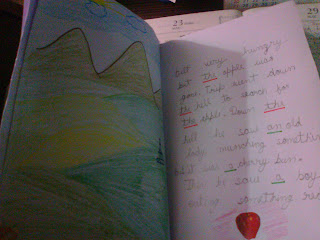 felt very hungry
but the apple was
gone. went down
the hill to search for
the apple. Down the
hill he saw an old
lady munching something
it was a bun.
he saw a boy
eating something